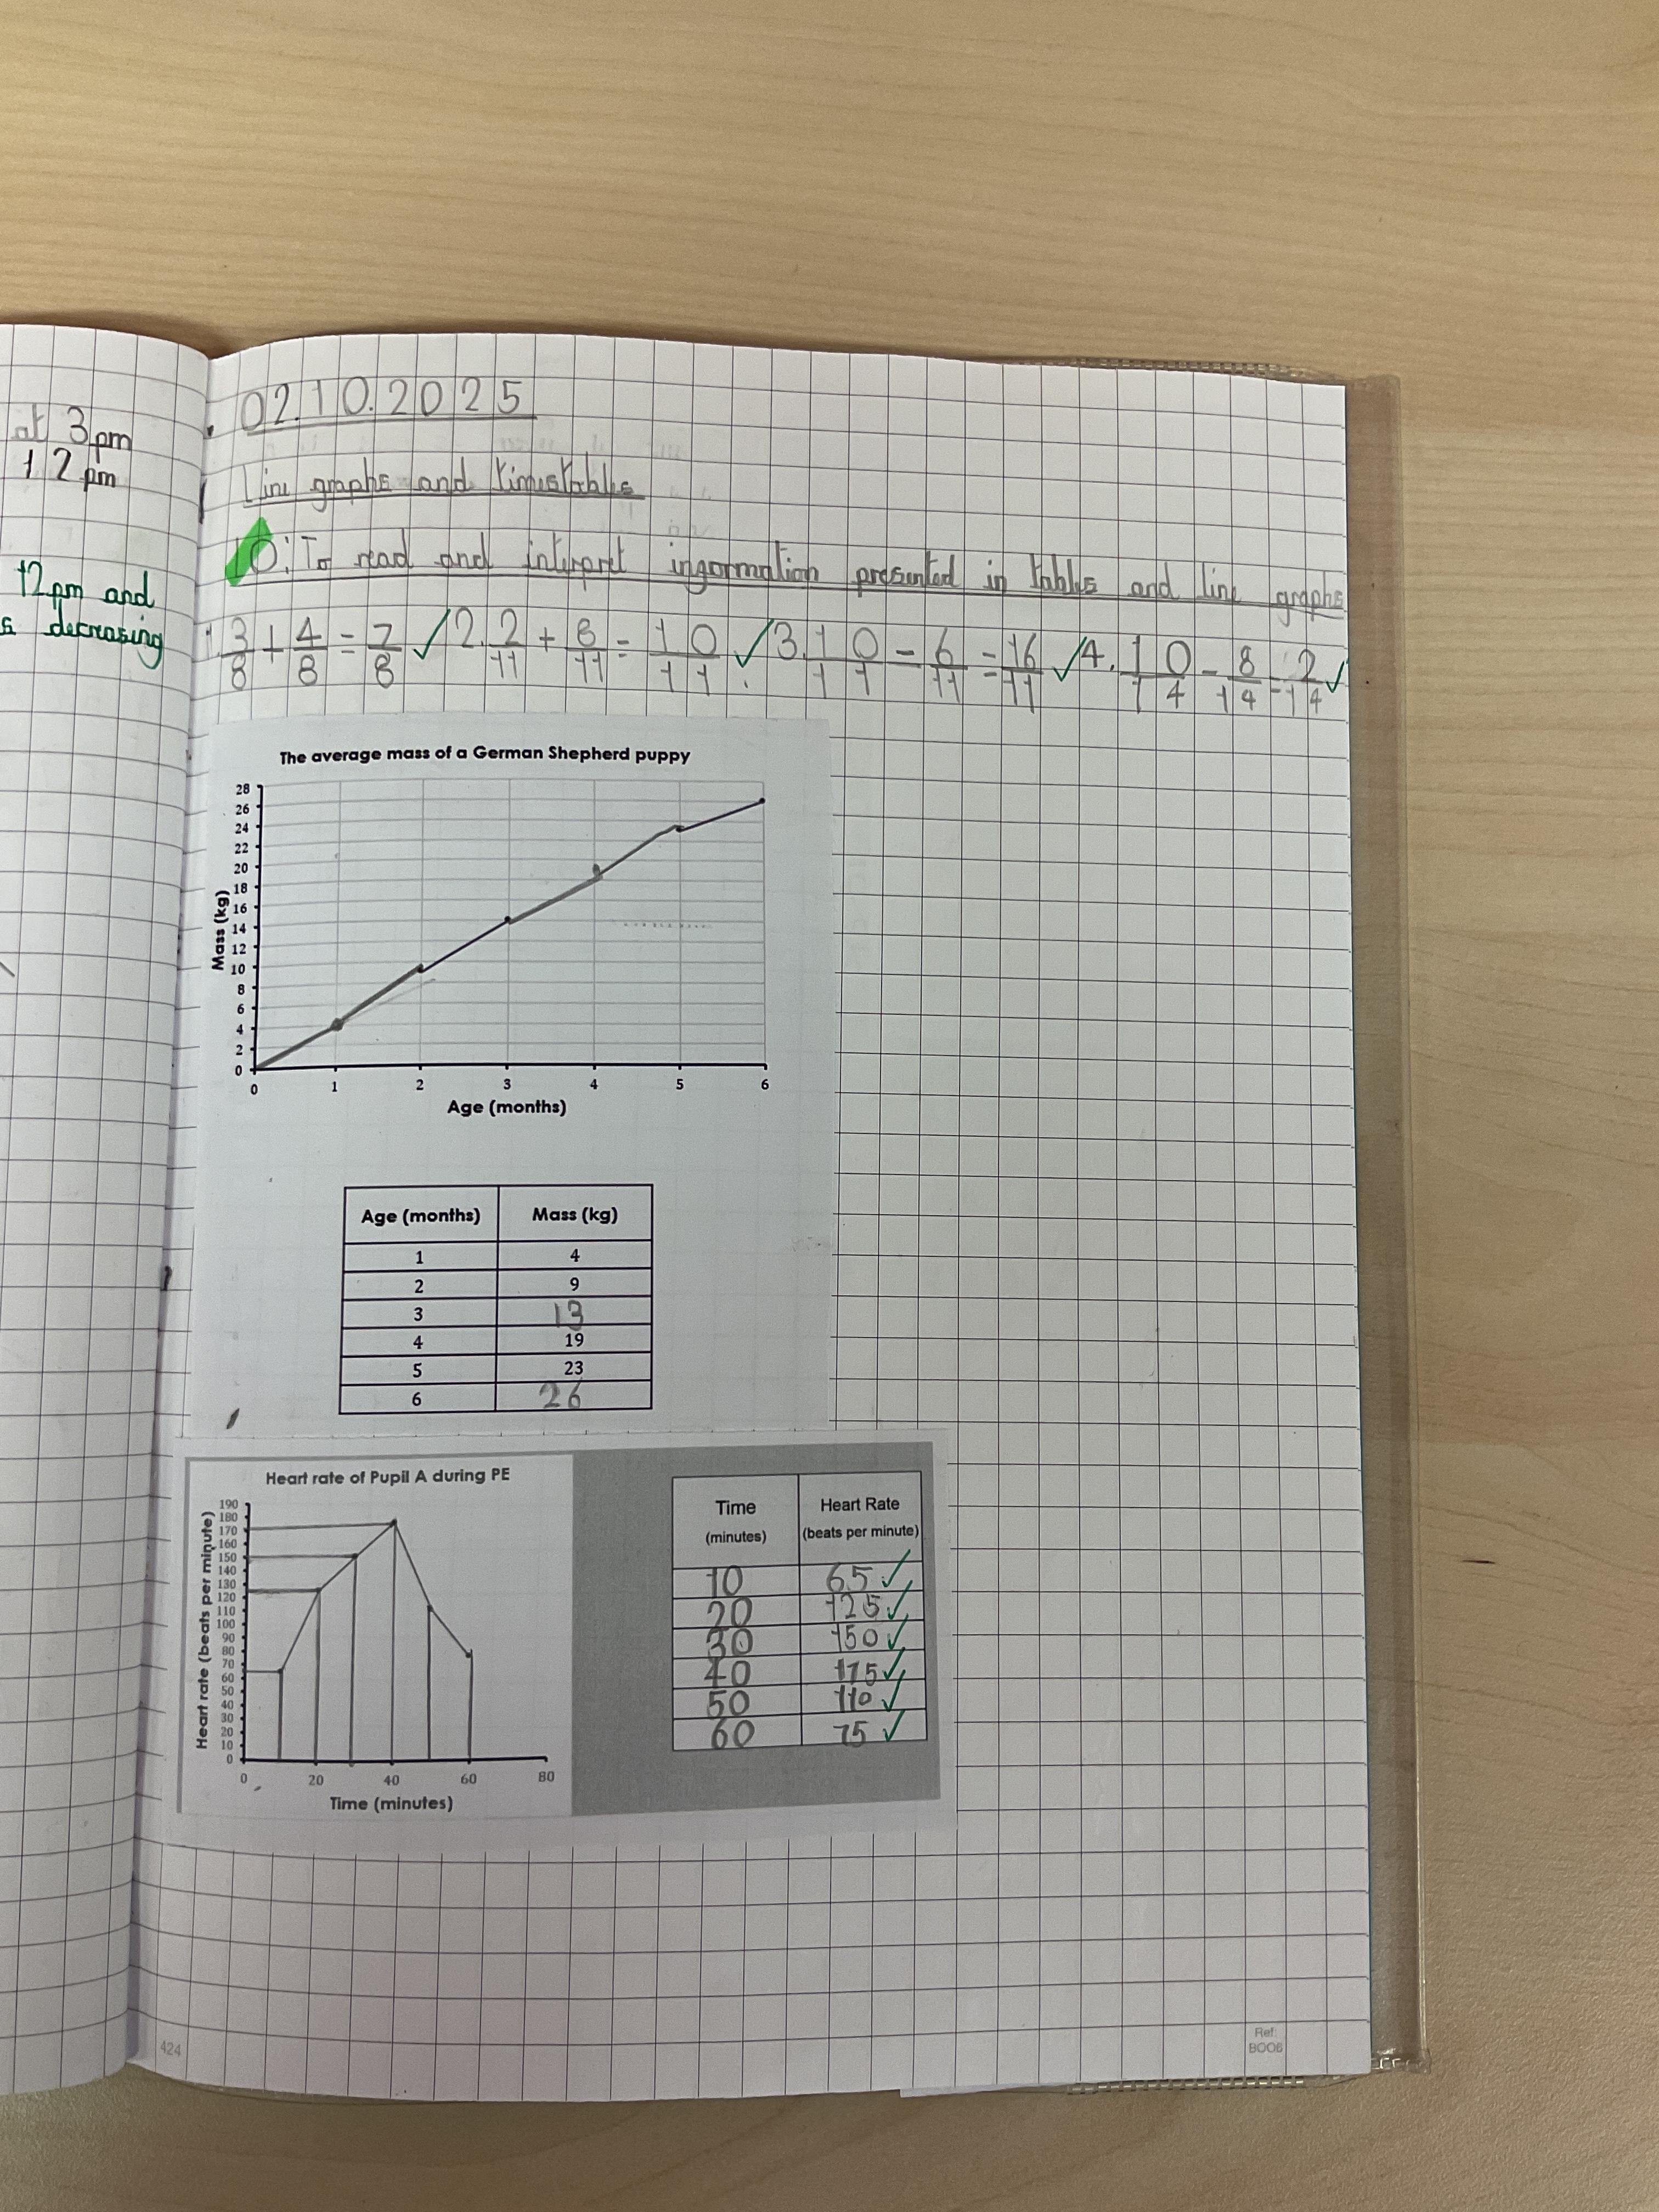 at 3pm
12pm
12pm and
s decreasing
02.10.2025
Line graphs and timestables
LO: To read and interpret ingormation presented in tables and line graphs
1. 3/8 + 4/8 = 7/8 ✓ 2. 2/11 + 8/11 = 10/11 ✓ 3. 10/11 - 6/11 = 16/11 ✓ 4. 10/14 - 8/14 = 2/14 ✓
The average mass of a German Shepherd puppy
Mass (kg)
28
26
24
22
20
18
16
14
12
10
8
6
4
2
0
0 1 2 3 4 5 6
Age (months)
Age (months) Mass (kg)
1 4
2 9
3 13
4 19
5 23
6 26
Heart rate of Pupil A during PE
Heart rate (beats per minute)
190
180
170
160
150
140
130
120
110
100
90
80
70
60
50
40
30
20
10
0
0 20 40 60 80
Time (minutes)
Time Heart Rate
(minutes) (beats per minute)
10 65 ✓
20 125 ✓
30 150 ✓
40 175 ✓
50 110 ✓
60 75 ✓
424
Ref:
BOOB